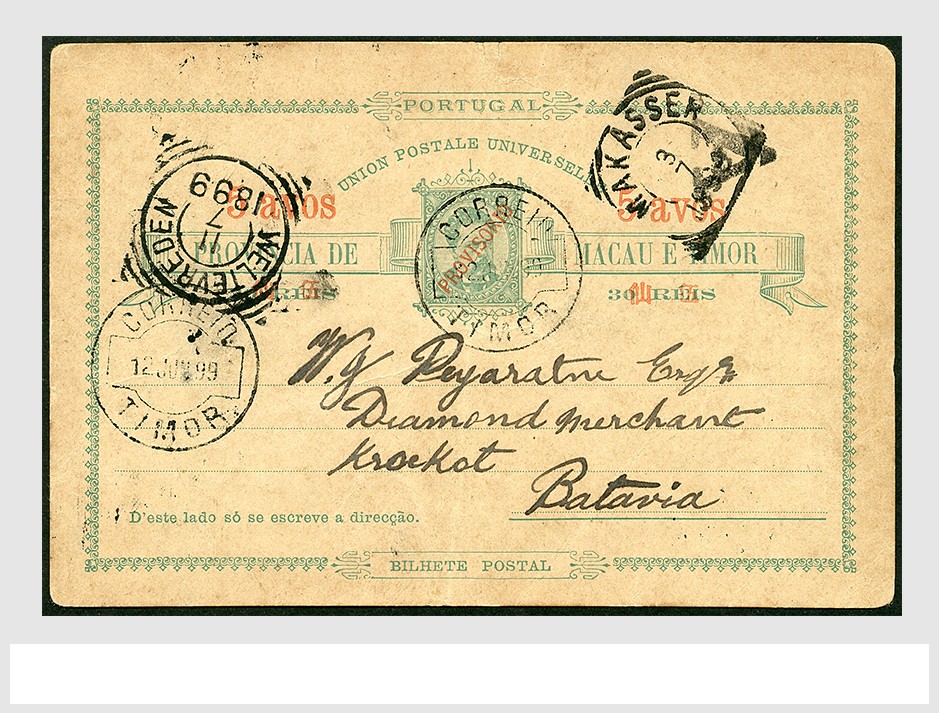 PORTUGAL
UNION POSTALE UNIVERSELLE
5 avos 5 avos
PROVISORIO
PROVINCIA DE MACAU E TIMOR
30 REIS
MAKASSER
WELTEVREDEN
1899
CORREIO
TIMOR
CORREIO
12 JUN 99
TIMOR
W. J. Deyaratne Esqr
Diamond merchant
Krockot
Batavia
D'este lado só se escreve a direcção.
BILHETE POSTAL